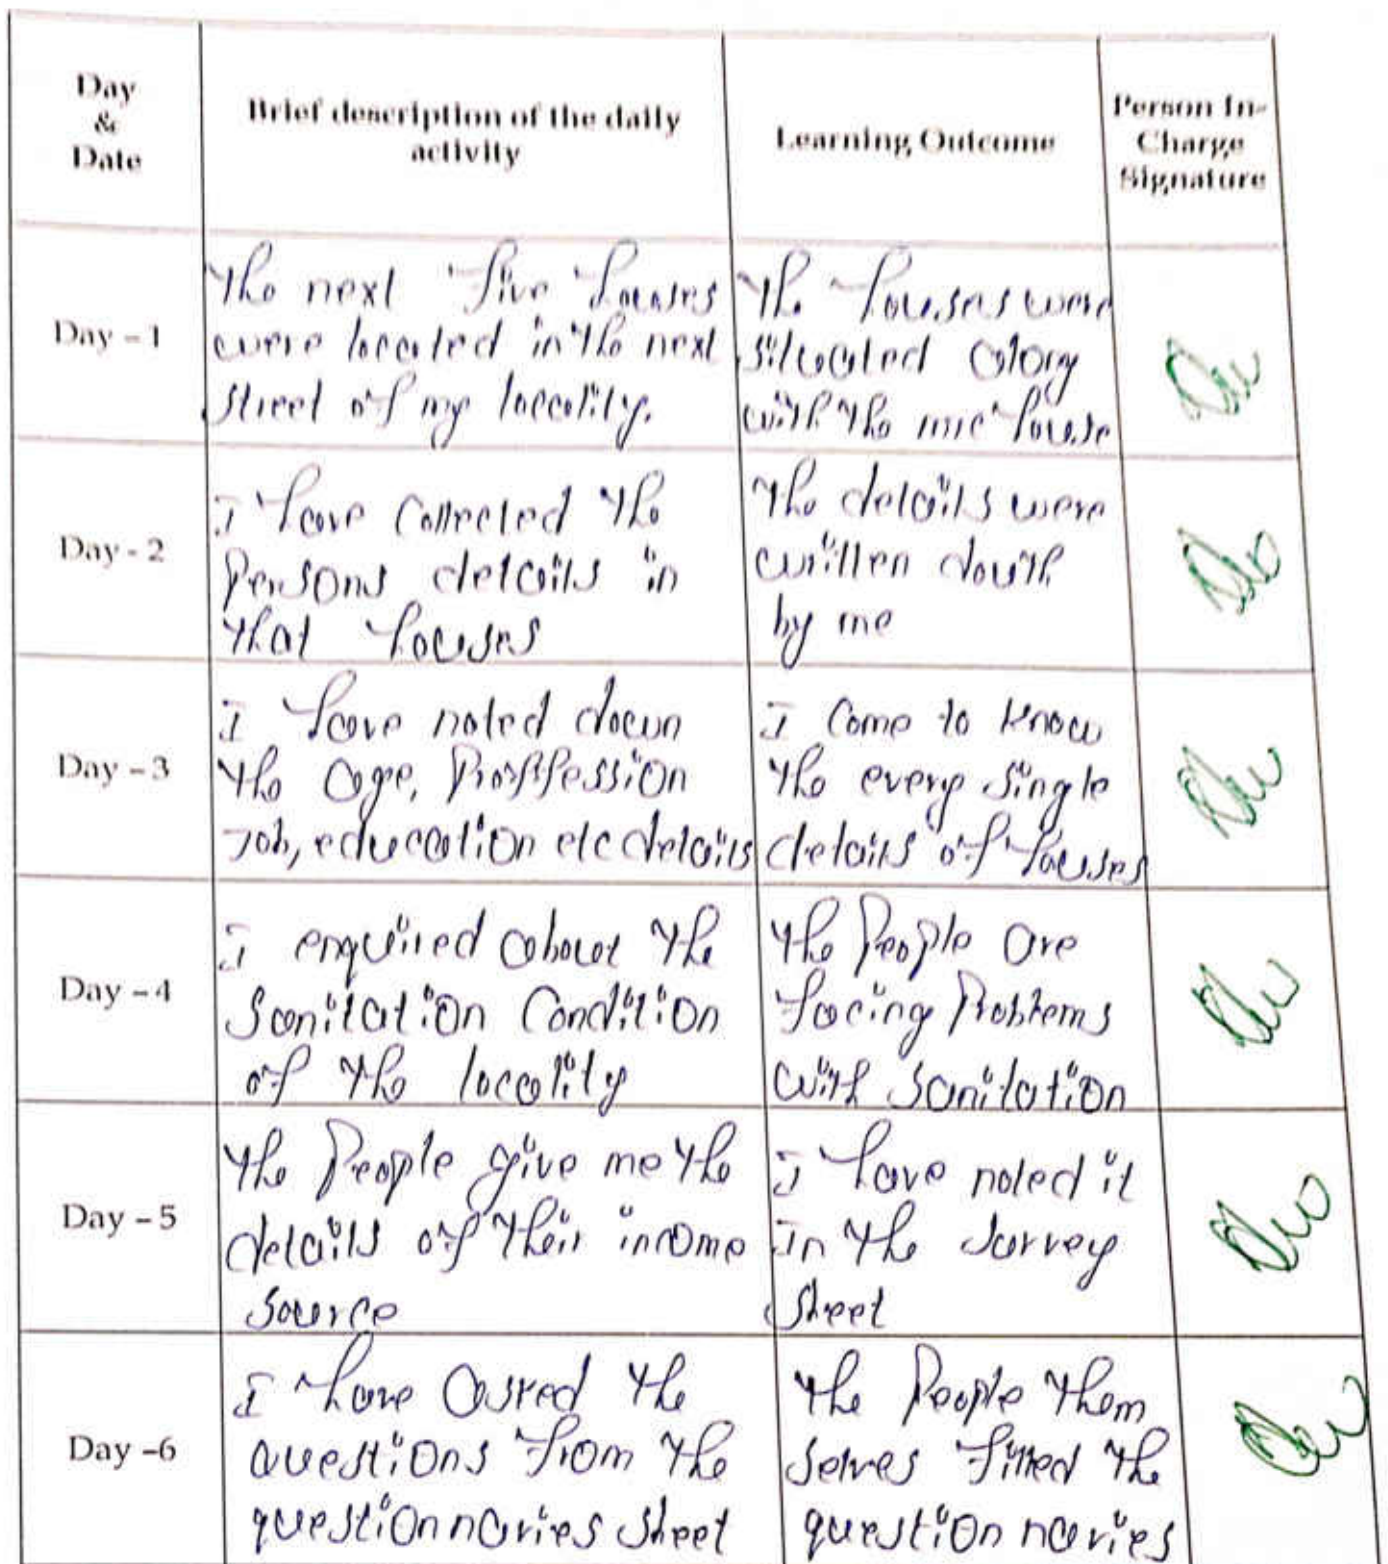 Day
&
Date
Brief description of the daily
activity
Learning Outcome
Person In-
Charge
Signature
Day - 1
The next five houses
were located in the next
street of my locality.
The houses were
situated along
with the house
Day - 2
I have collected the
persons details in
that houses
The details were
written
by me
Day - 3
I have noted down
the age, Proffession
Job, education etc details
I come to know
the every single
details of houses
Day - 4
I enquired about the
Sanitation Condition
of the locality
The People are
facing Problems
with sanitation
Day - 5
The People give me the
details of their income
source
I have noted it
In the survey
sheet
Day -6
I have asked the
questions from the
questionnaries sheet
The People them
selves filled the
questionnaries